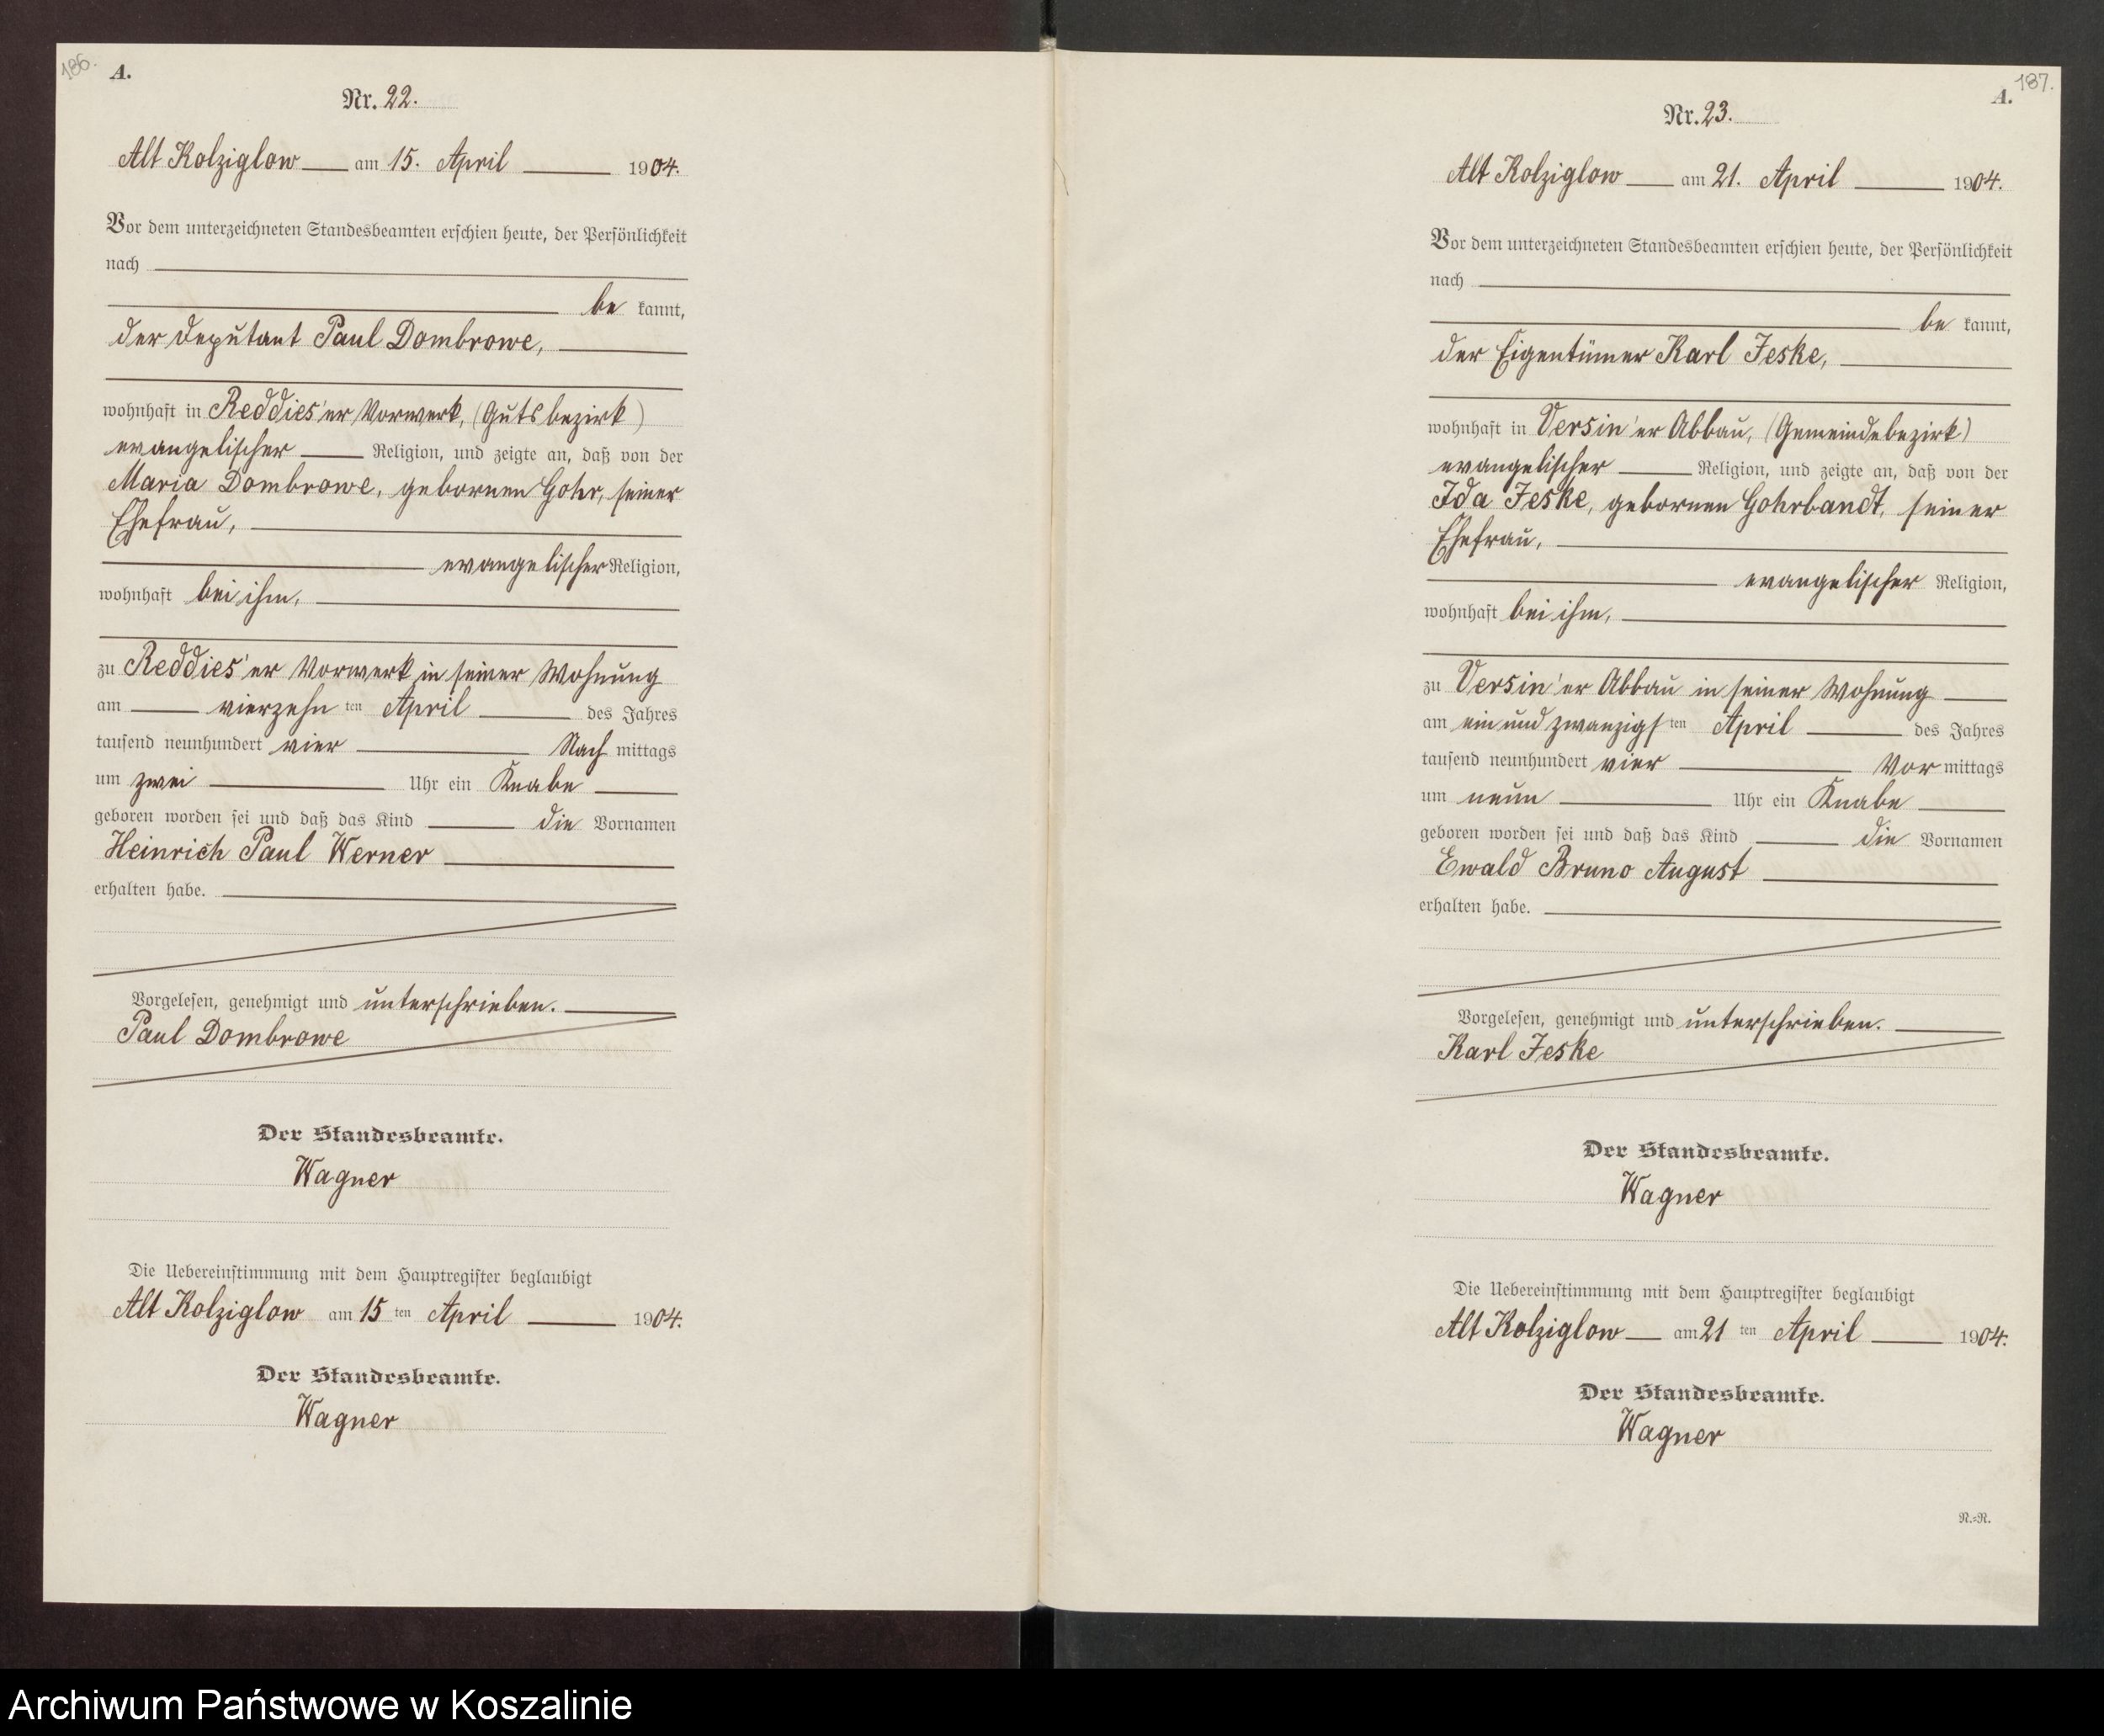 186.
A.
Nr. 22.
Alt Kolziglow am 15. April 1904.
Vor dem unterzeichneten Standesbeamten erschien heute, der Persönlichkeit
nach
be kannt,
der Deputant Paul Dombrowe,
wohnhaft in Reddies'er Vorwerk, (Gutsbezirk)
evangelischer Religion, und zeigte an, daß von der
Maria Dombrowe, gebornen Gohr, seiner
Ehefrau,
evangelischer Religion,
wohnhaft bei ihm,
zu Reddies'er Vorwerk in seiner Wohnung
am vierzehn ten April des Jahres
tausend neunhundert vier Nach mittags
um zwei Uhr ein Knabe
geboren worden sei und daß das Kind die Vornamen
Heinrich Paul Werner
erhalten habe.
Vorgelesen, genehmigt und unterschrieben.
Paul Dombrowe
Der Standesbeamte.
Wagner
Die Uebereinstimmung mit dem Hauptregister beglaubigt
Alt Kolziglow am 15 ten April 1904.
Der Standesbeamte.
Wagner
187.
A.
Nr. 23.
Alt Kolziglow am 21. April 1904.
Vor dem unterzeichneten Standesbeamten erschien heute, der Persönlichkeit
nach
be kannt,
der Eigentümer Karl Jeske,
wohnhaft in Versin'er Abbau, (Gemeindebezirk)
evangelischer Religion, und zeigte an, daß von der
Ida Jeske, gebornen Gohrbandt, seiner
Ehefrau,
evangelischer Religion,
wohnhaft bei ihm,
zu Versin'er Abbau in seiner Wohnung
am ein und zwanzigs ten April des Jahres
tausend neunhundert vier Vor mittags
um neun Uhr ein Knabe
geboren worden sei und daß das Kind die Vornamen
Ewald Bruno August
erhalten habe.
Vorgelesen, genehmigt und unterschrieben.
Karl Jeske
Der Standesbeamte.
Wagner
Die Uebereinstimmung mit dem Hauptregister beglaubigt
Alt Kolziglow am 21 ten April 1904.
Der Standesbeamte.
Wagner
R.=R.
Archiwum Państwowe w Koszalinie